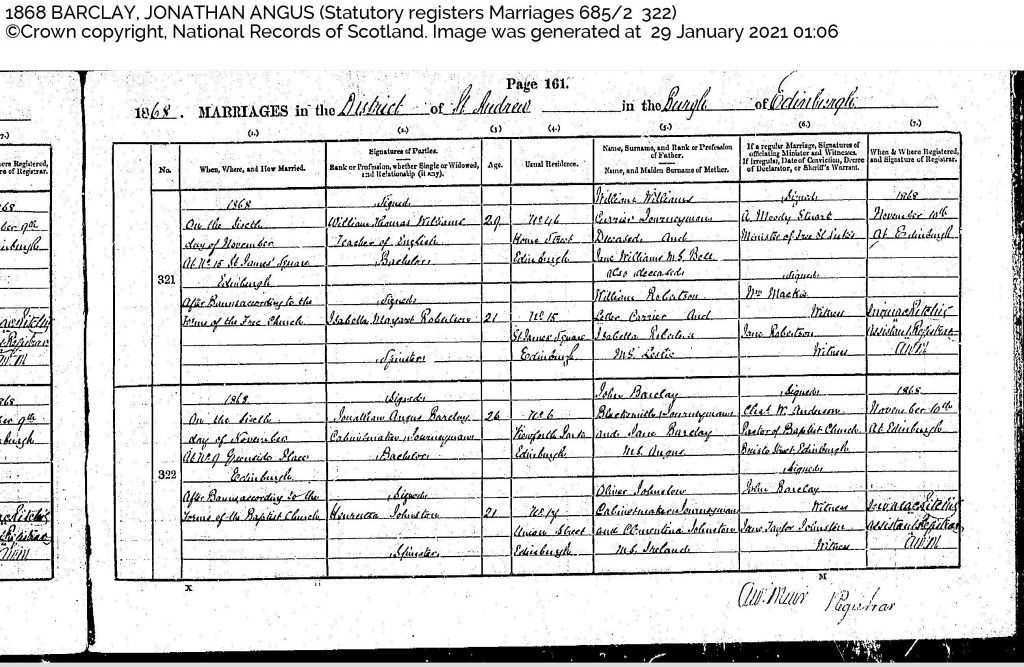 1868 BARCLAY, JONATHAN ANGUS (Statutory registers Marriages 685/2 322)
©Crown copyright, National Records of Scotland. Image was generated at 29 January 2021 01:06
Page 161.
1868. MARRIAGES in the District of St Andrew in the Burgh of Edinburgh
7.)
(1.) (2.) (3) (4.) (5.) (6.) (7.)
No.
When, Where, and How Married.
Signatures of Parties.
Rank or Profession, whether Single or Widowed, and Relationship (if any).
Age.
Usual Residence.
Name, Surname, and Rank or Profession of Father.
Name, and Maiden Surname of Mother.
If a regular Marriage, Signatures of officiating Minister and Witnesses.
If irregular, Date of Conviction, Decree of Declarator, or Sheriff's Warrant.
When & Where Registered, and Signature of Registrar.
321
1868
On the Sixth
day of November
At No 15 St James' Square
Edinburgh
After Banns according to the
Forms of the Free Church
Signed
William Thomas Williams
Teacher of English
Bachelor
Signed
Isabella Margaret Robertson
Spinster
29
21
No 46
Home Street
Edinburgh
No 15
St James Square
Edinburgh
William Williams
Currier Journeyman
Deceased And
Jane Williams M.S. Bell
also deceased
William Robertson
Letter Carrier And
Isabella Robertson
M.S. Leslie
Signed
A. Moody Stuart
Minister of Free St Luke's
Signed
Wm Mackie
Witness
Jane Robertson
Witness
1868
November 10th
At Edinburgh
Assistant Registrar
AWM
322
1868
On the Sixth
day of November
At No 9 Greenside Place
Edinburgh
After Banns according to the
Forms of the Baptist Church
Signed
Jonathan Angus Barclay
Cabinetmaker Journeyman
Bachelor
Signed
Henrietta Johnston
Spinster
26
21
No 6
Viewforth Park
Edinburgh
No 17
Union Street
Edinburgh
John Barclay
Blacksmith Journeyman
and Jane Barclay
M.S. Angus
Oliver Johnston
Cabinetmaker Journeyman
and Clementina Johnston
M.S. Ireland
Signed
Chas. W. Anderson
Pastor of Baptist Church
Bristo Street Edinburgh
Signed
John Barclay
Witness
Jane Taylor Johnston
Witness
1868
November 10th
At Edinburgh
Assistant Registrar
AWM
X
M
Aw. Muir Registrar